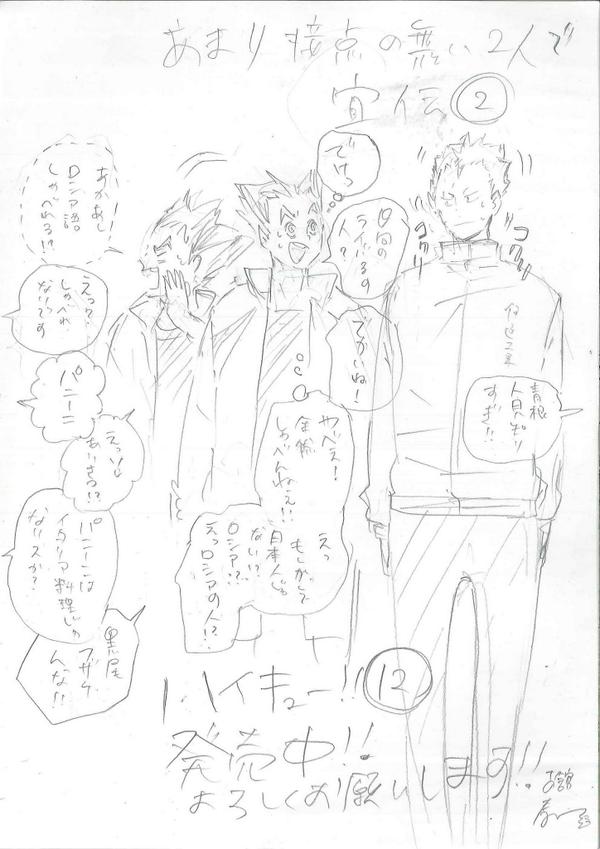 あまり接点の無い2人で
宣伝②
でけっ
日向の
ライバルの
人?
でかいね!
コクッ
コクッ
伊達工業
青根
人見知り
すぎ!!
やべぇ!
全然
しゃべんねぇ!!
えっ
もしかして
日本人じゃ
ない!?
ロシア?
えっロシアの人!?
あかあし
ロシア語
しゃべれる!?
えっ?
しゃべれ
ないです
パニーニ
えっいま
あいさつ!?
パニーニは
イタリア料理じゃ
ないスか?
黒尾
フザケ
んな!!
ハイキュー!!⑫
発売中!!
よろしくお願いします!!
古舘
春一